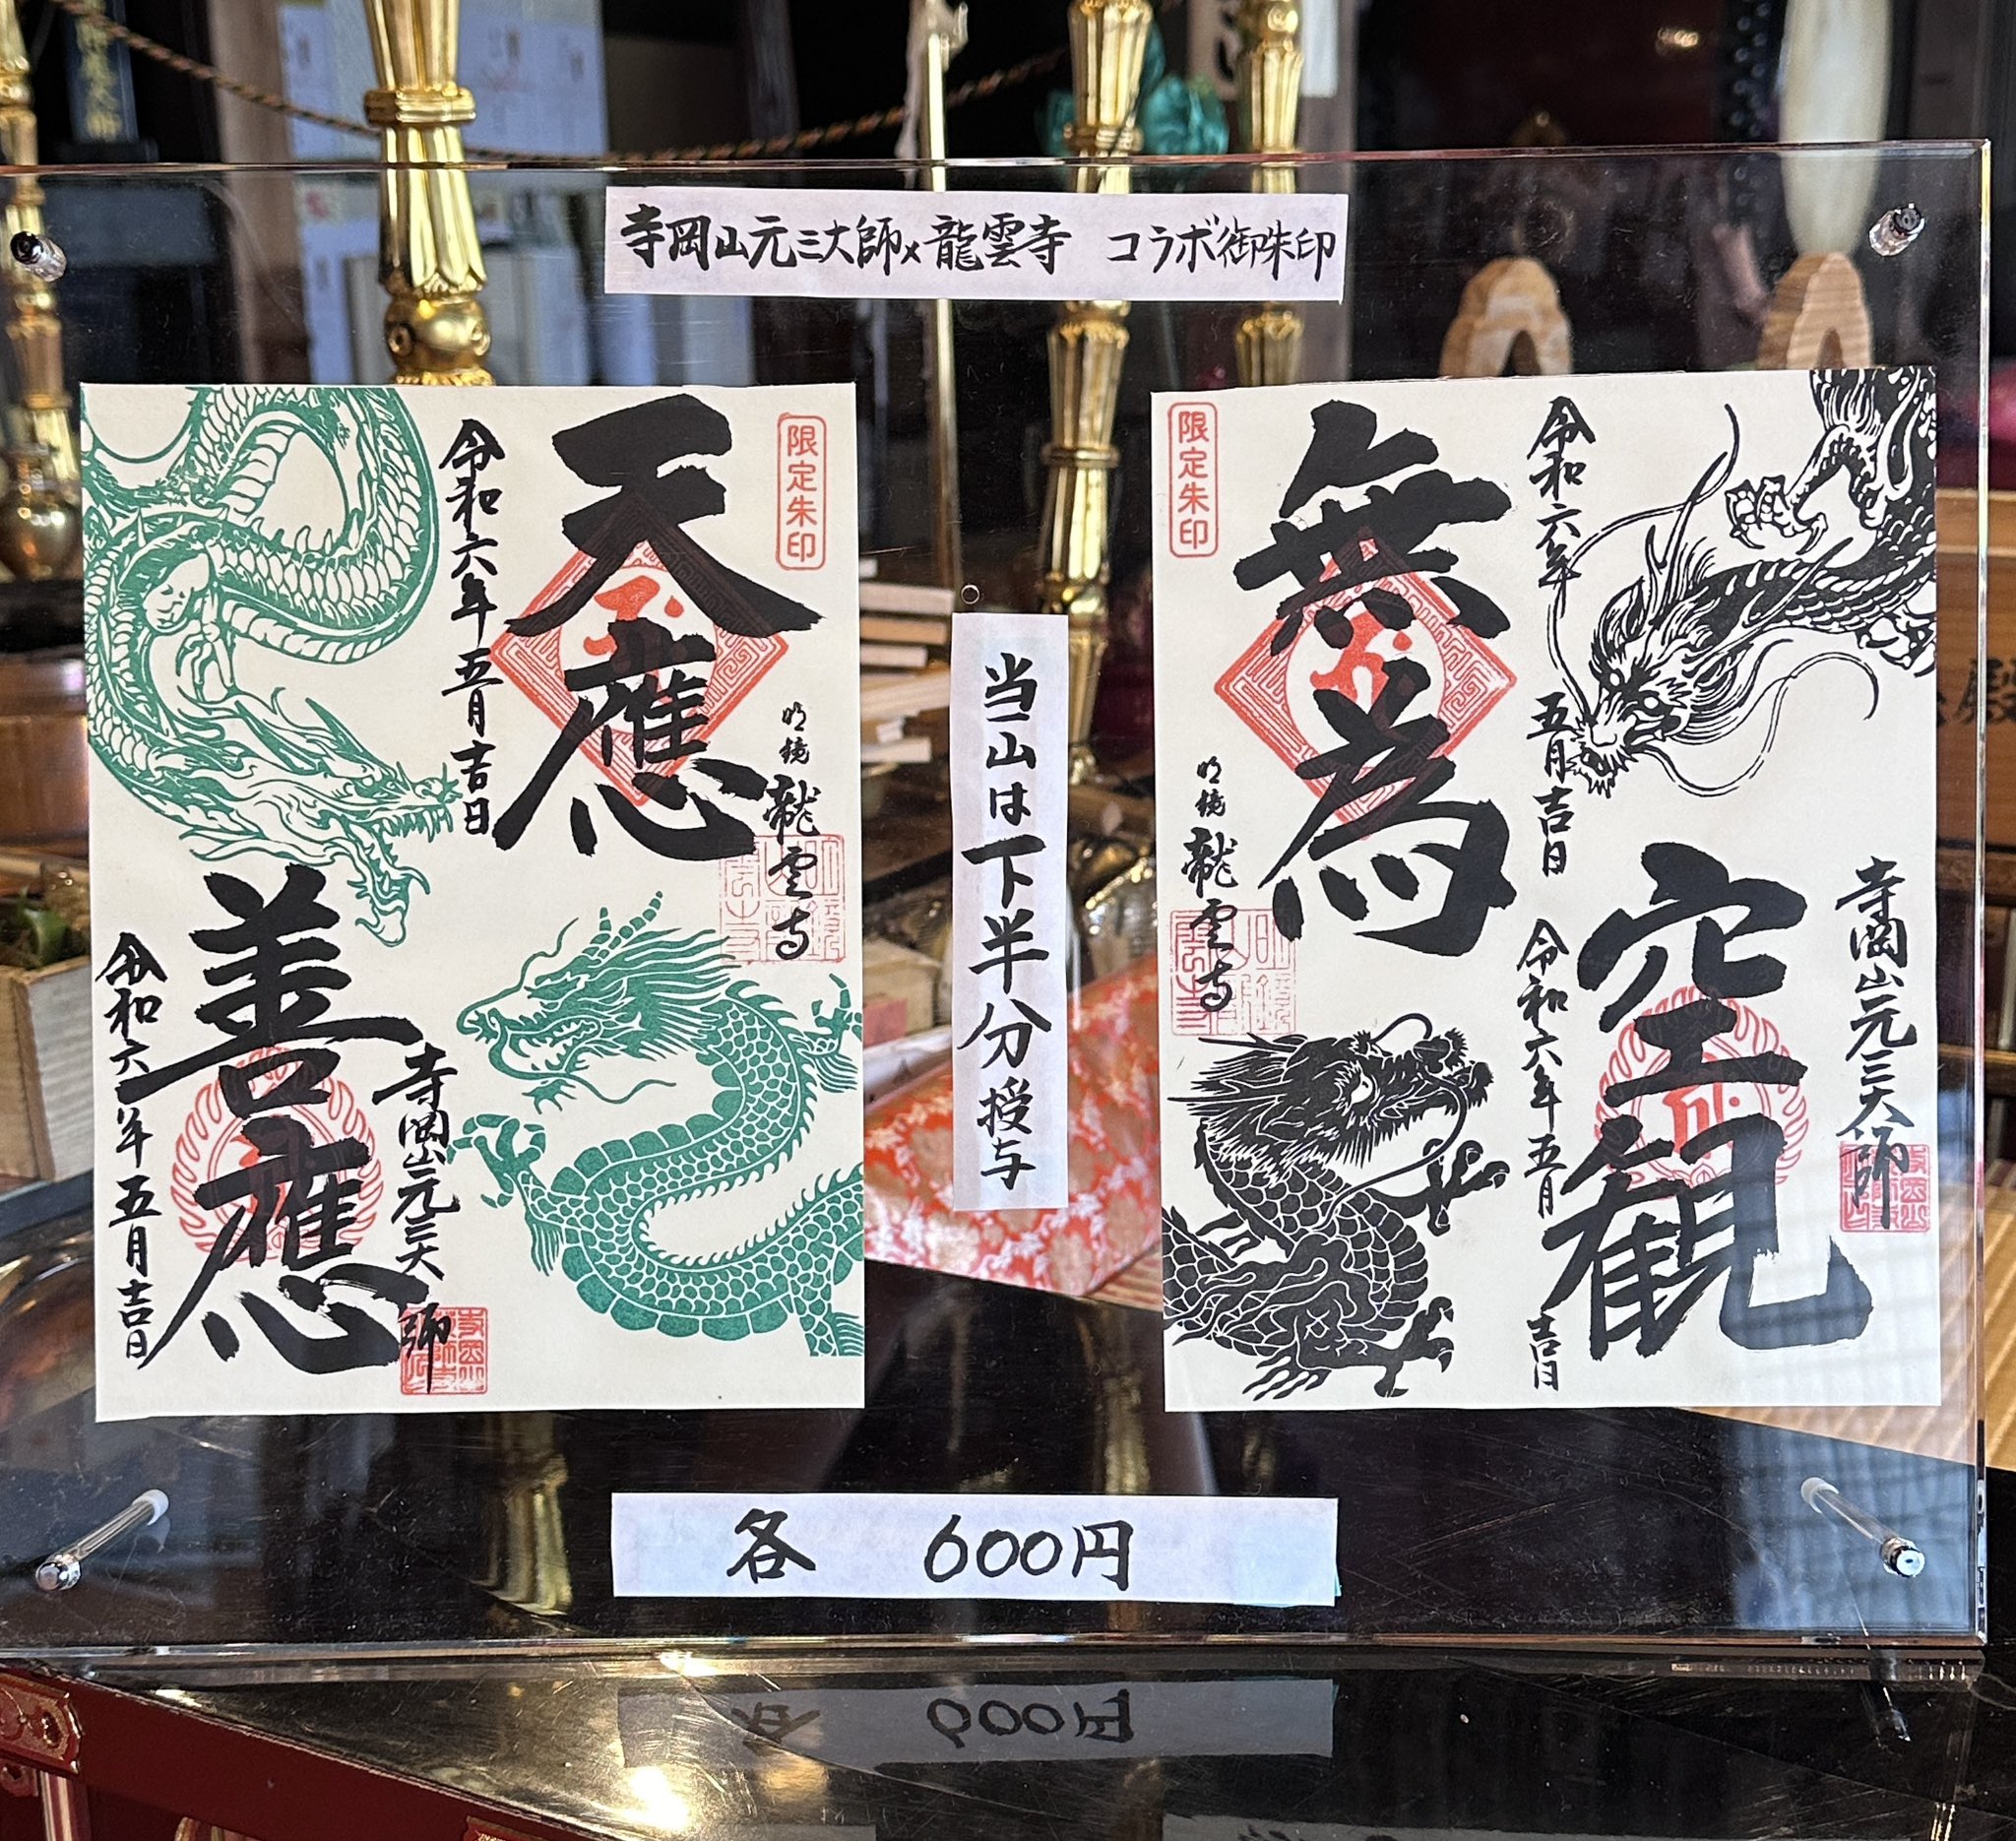 寺岡山元三大師×龍雲寺　コラボ御朱印
限定朱印
天應
令和六年五月吉日
明鏡 龍雲寺
善應
寺岡山元三大師
令和六年五月吉日
当山は下半分授与
限定朱印
無為
令和六年五月吉日
明鏡 龍雲寺
寺岡山元三大師
空観
令和六年五月吉日
各　600円